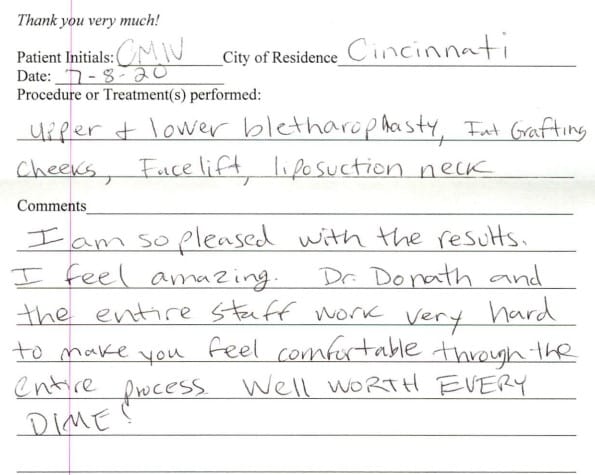 Thank you very much!
Patient Initials: CMW City of Residence Cincinnati
Date: 7-8-20
Procedure or Treatment(s) performed:
upper + lower bletharophasty, Fat Grafting
cheeks, Facelift, liposuction neck
Comments
I am so pleased with the results.
I feel amazing. Dr. Donath and
the entire staff work very hard
to make you feel comfortable through the
entire process. Well WORTH EVERY
DIME!